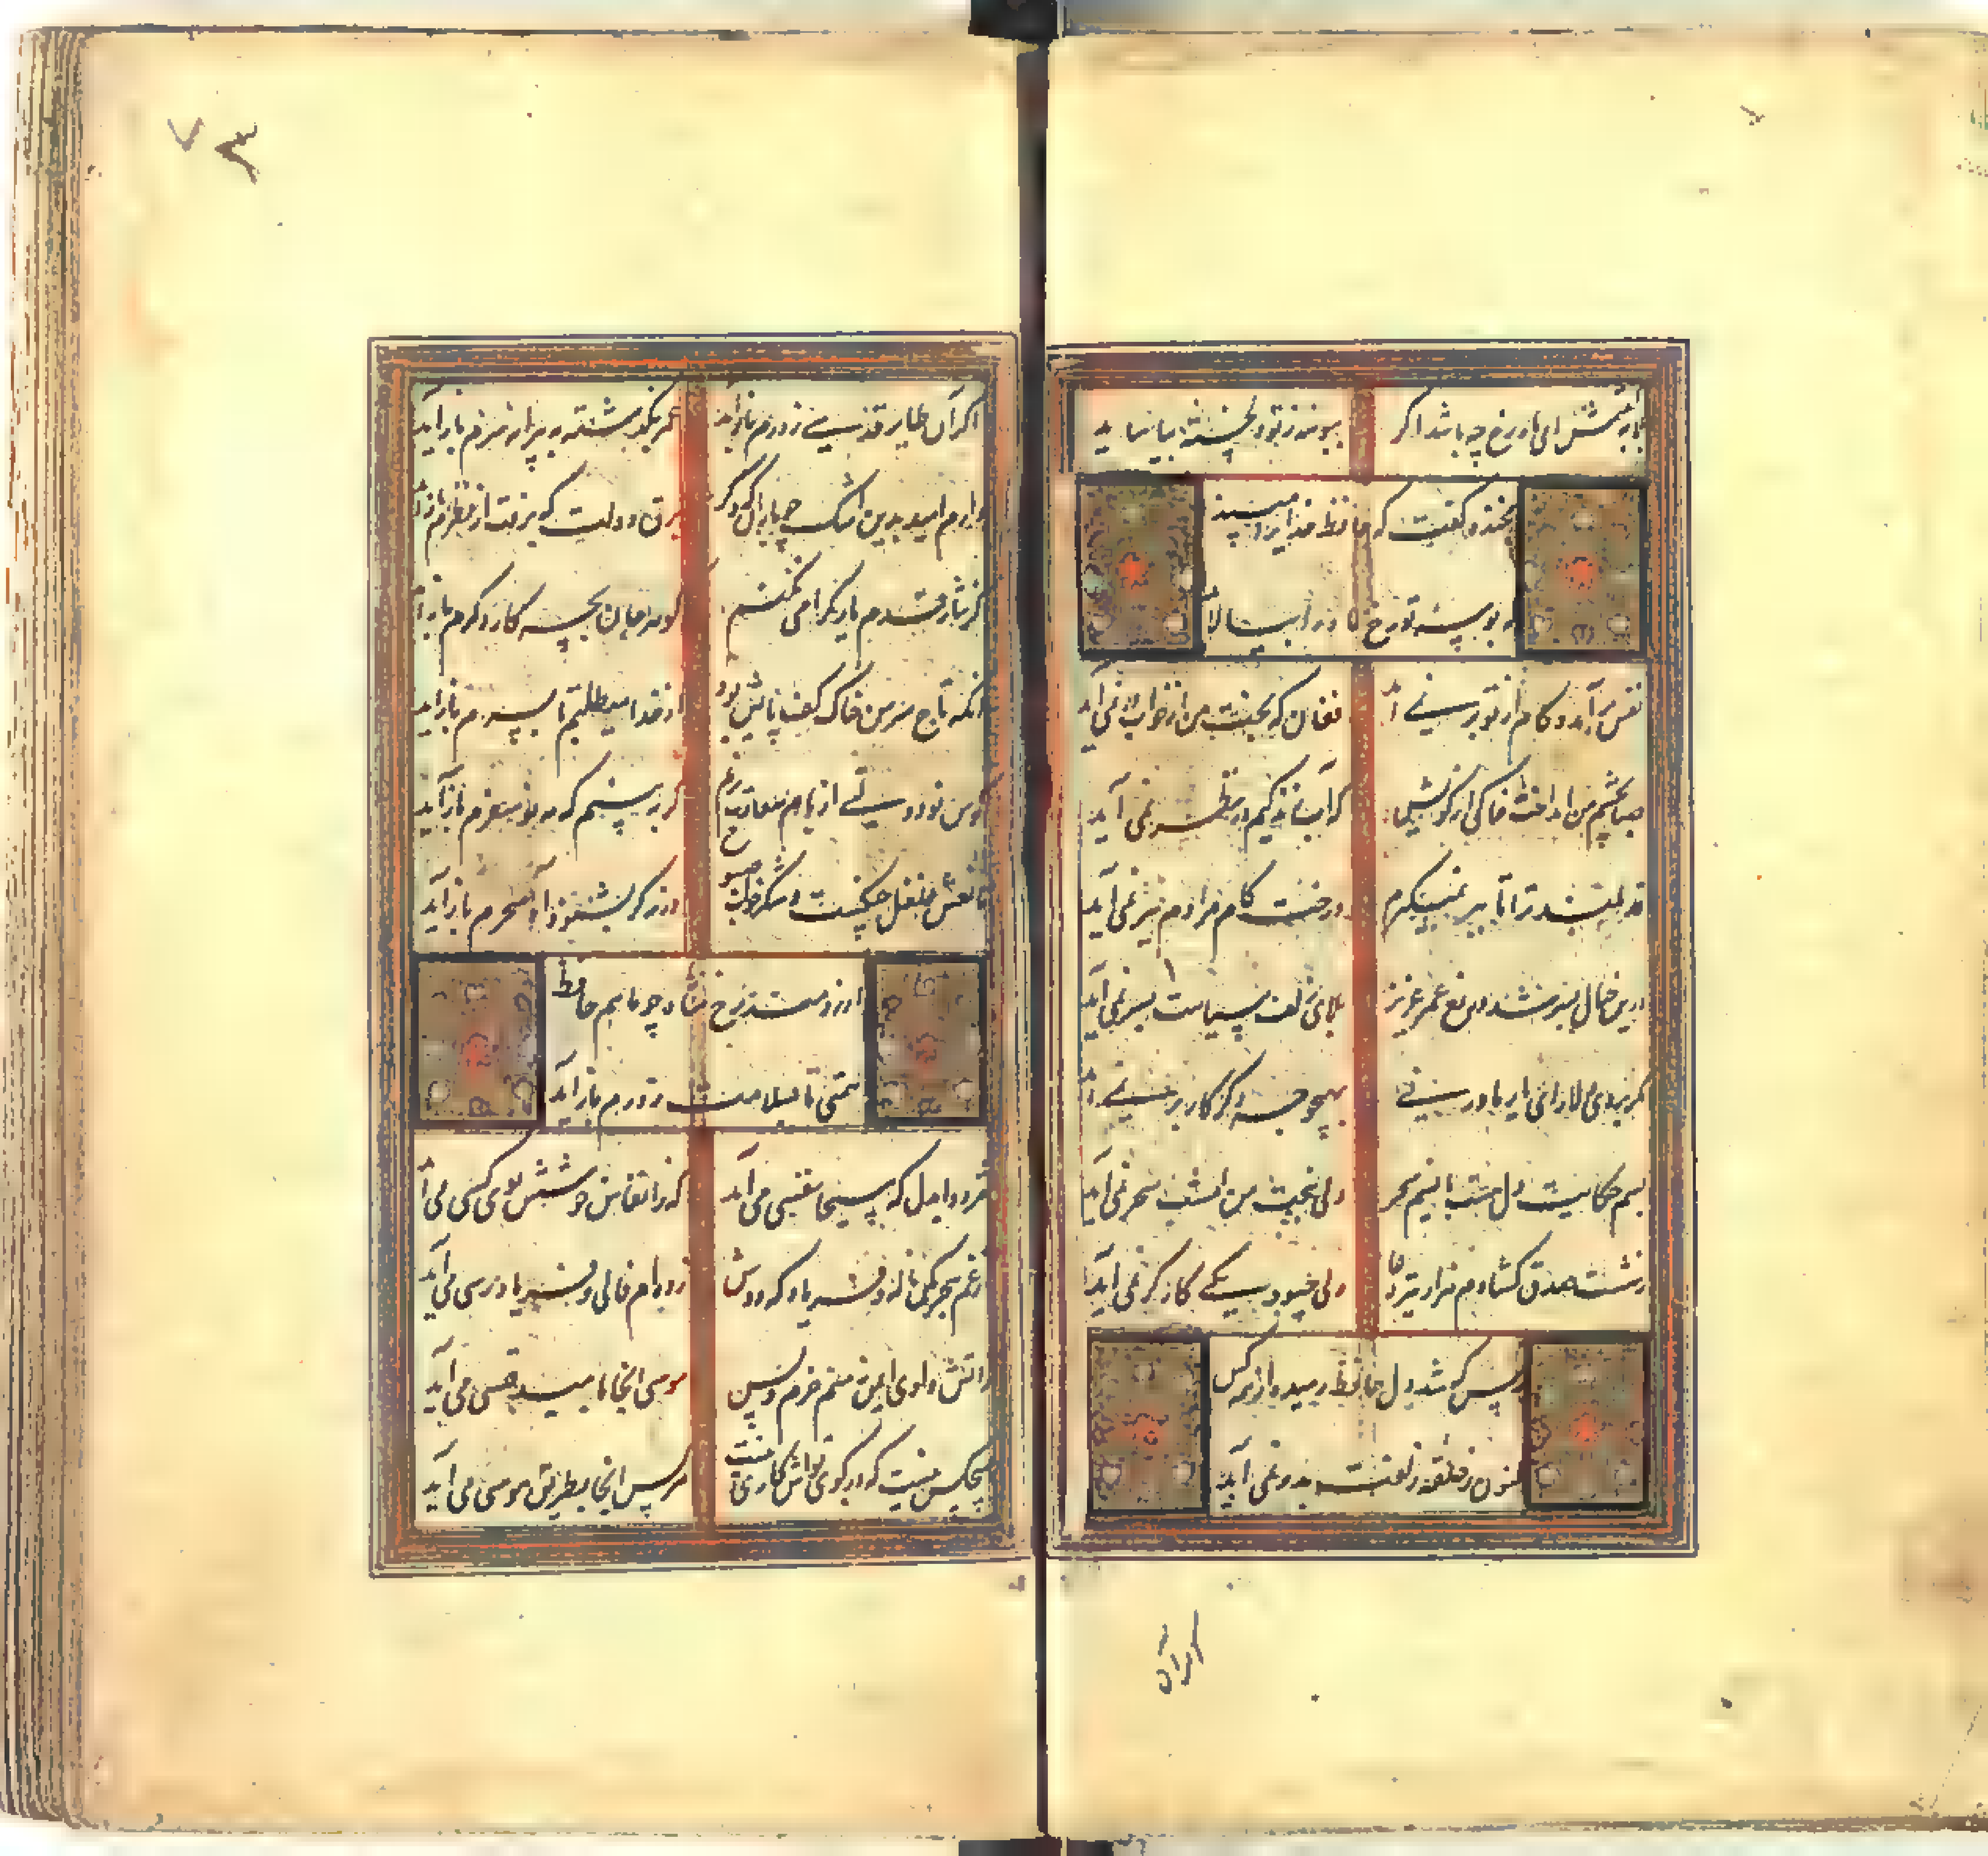 بگفتمش ای ماه رخ چه باشد اگر
ز تو دلخسته بیاساید
بخنده گفت که حافظ خدایرا مپسند
که بوسه تو رخ ماه را بیالاید
نفس برآمد و کام از تو بر نمی آید
فغان که بخت من از خواب در نمی آید
صبا بچشم من انداخت خاکی از کویش
که آب زندگیم در نظر نمی آید
قد بلند ترا تا ببر نمیگیرم
درخت کام مرادم ببر نمی آید
درین خیال بسر شد دریغ عمر عزیز
بلای زلف سیاهت بسر نمی آید
مگر بروی دلارای یار ما ورنی
بهیچ وجه دگر کار بر نمی آید
بسم حکایت دل هست با نسیم سحر
ولی ببخت من امشب سحر نمی آید
ز شست صدق گشادم هزار تیر دعا
ولی چه سود یکی کارگر نمی آید
ز بس که شد دل حافظ رمیده از همه کس
کنون ز حلقه زلفت بدر نمی آید
اگر آن
۷۳
اگر آن طایر قدسی ز درم باز آید
عمر بگذشته به پیرانه سرم باز آید
دارم امید بدین اشک چو باران که دگر
برق دولت که برفت از نظرم باز آید
گر نثار قدم یار گرامی نکنم
گوهر جان بچه کار دگرم باز آید
آنکه تاج سر من خاک کف پایش بود
از خدا میطلبم تا بسرم باز آید
کوس نو دولتی از بام سعادت بزنم
گر ببینم که مه نو سفرم باز آید
مانعش غلغل چنگست و شکرخواب صبوح
ورنه گر بشنود آه سحرم باز آید
آرزومند رخ شاه چو ماهم حافظ
همتی تا بسلامت ز درم باز آید
مژده ای دل که مسیحا نفسی می آید
که ز انفاس خوشش بوی کسی می آید
از غم هجر مکن ناله و فریاد که دوش
زده ام فالی و فریاد رسی می آید
ز آتش وادی ایمن نه منم خرم و بس
موسی اینجا بامید قبسی می آید
هیچکس نیست که در کوی تواش کاری نیست
هر کس اینجا بطریق هوسی می آید